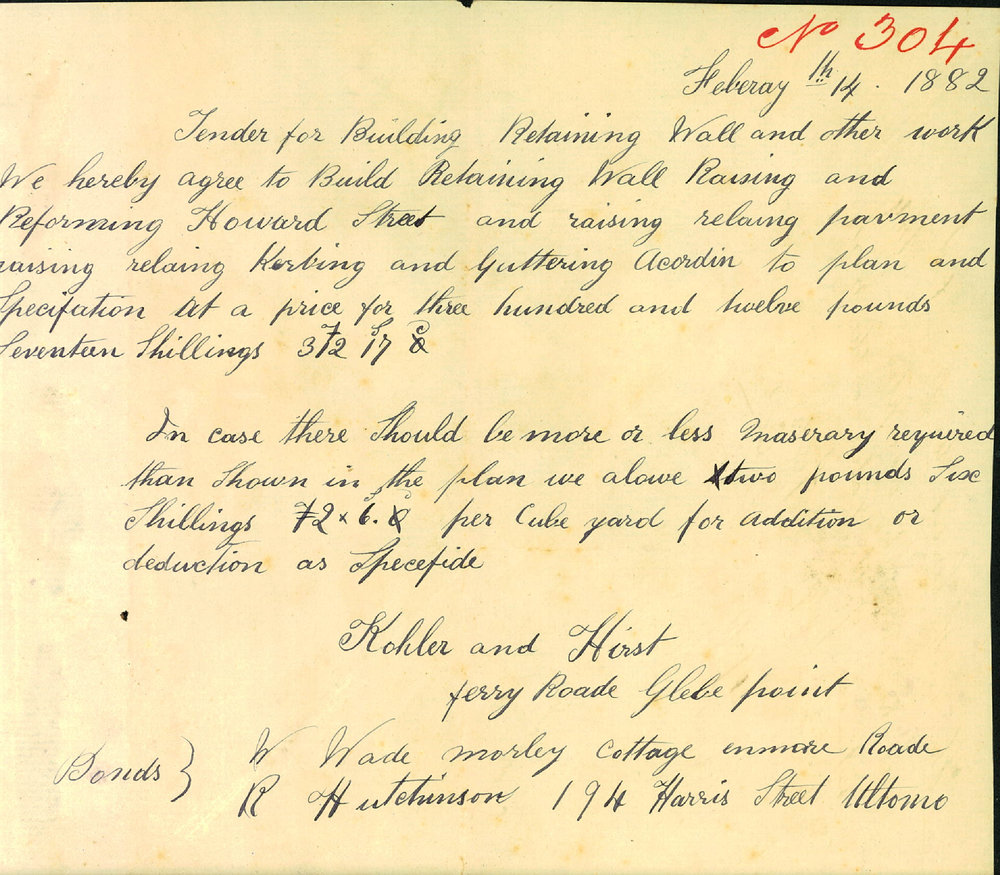 No 304
Feberay 14th. 1882
Tender for Building Retaining Wall and other work
We hereby agree to Build Retaining Wall Raising and
Reforming Howard Street and raising relaing pavment
raising relaing Kerbing and Guttering Acordin to plan and
Specifation At a price for three hundred and twelve pounds
Seventeen Shillings 312 17
In case there Should be more or less maserary required
than Shown in the plan we alowe two pounds Six
Shillings 2 x 6. per Cube yard for addition or
deduction as Specefide
Kohler and Hirst
ferry Roade Glebe point
Bonds } W Wade morley Cottage enmore Roade
R Hutchinson 194 Harris Street Ultomo